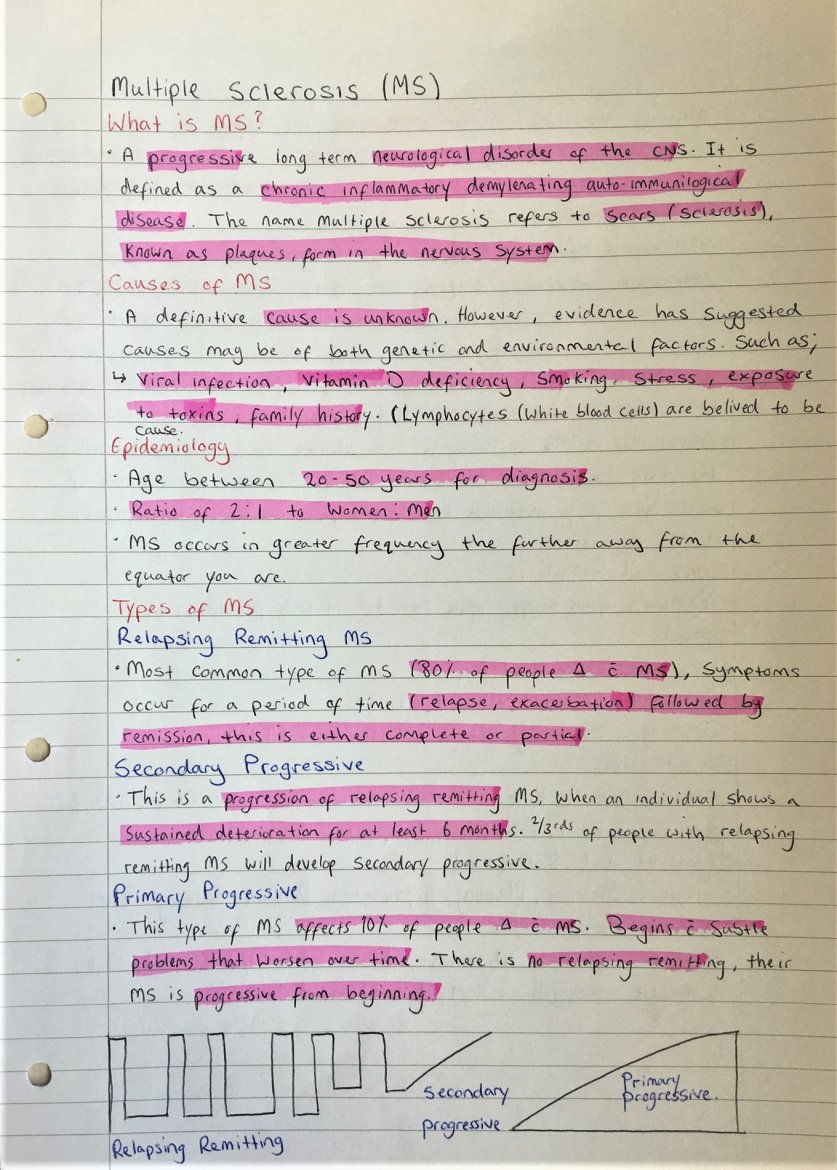 Multiple Sclerosis (MS)
What is MS?
· A progressive long term neurological disorder of the CNS. It is
defined as a chronic inflammatory demylenating auto-immunilogical
disease. The name Multiple Sclerosis refers to scars (sclerosis),
known as plaques, form in the nervous system.
Causes of MS
· A definitive cause is unknown. However, evidence has suggested
causes may be of both genetic and environmental factors. Such as;
↳ Viral infection, Vitamin D deficiency, Smoking, Stress, exposure
to toxins, family history. (Lymphocytes (white blood cells) are belived to be
cause.
Epidemiology
· Age between 20-50 years for diagnosis.
· Ratio of 2:1 to Women: Men
· MS occurs in greater frequency the further away from the
equator you are.
Types of MS
Relapsing Remitting MS
· Most common type of MS (80% of people Δ c̄ MS), Symptoms
occur for a period of time (relapse, exacerbation) followed by
remission, this is either complete or partial.
Secondary Progressive
· This is a progression of relapsing remitting MS, when an individual shows a
Sustained deterioration for at least 6 months. 2/3rds of people with relapsing
remitting MS will develop secondary progressive.
Primary Progressive
· This type of MS affects 10% of people Δ c̄ MS. Begins c̄ subtle
problems that worsen over time. There is no relapsing remitting, their
MS is progressive from beginning.
Secondary
progressive
Primary
progressive.
Relapsing Remitting